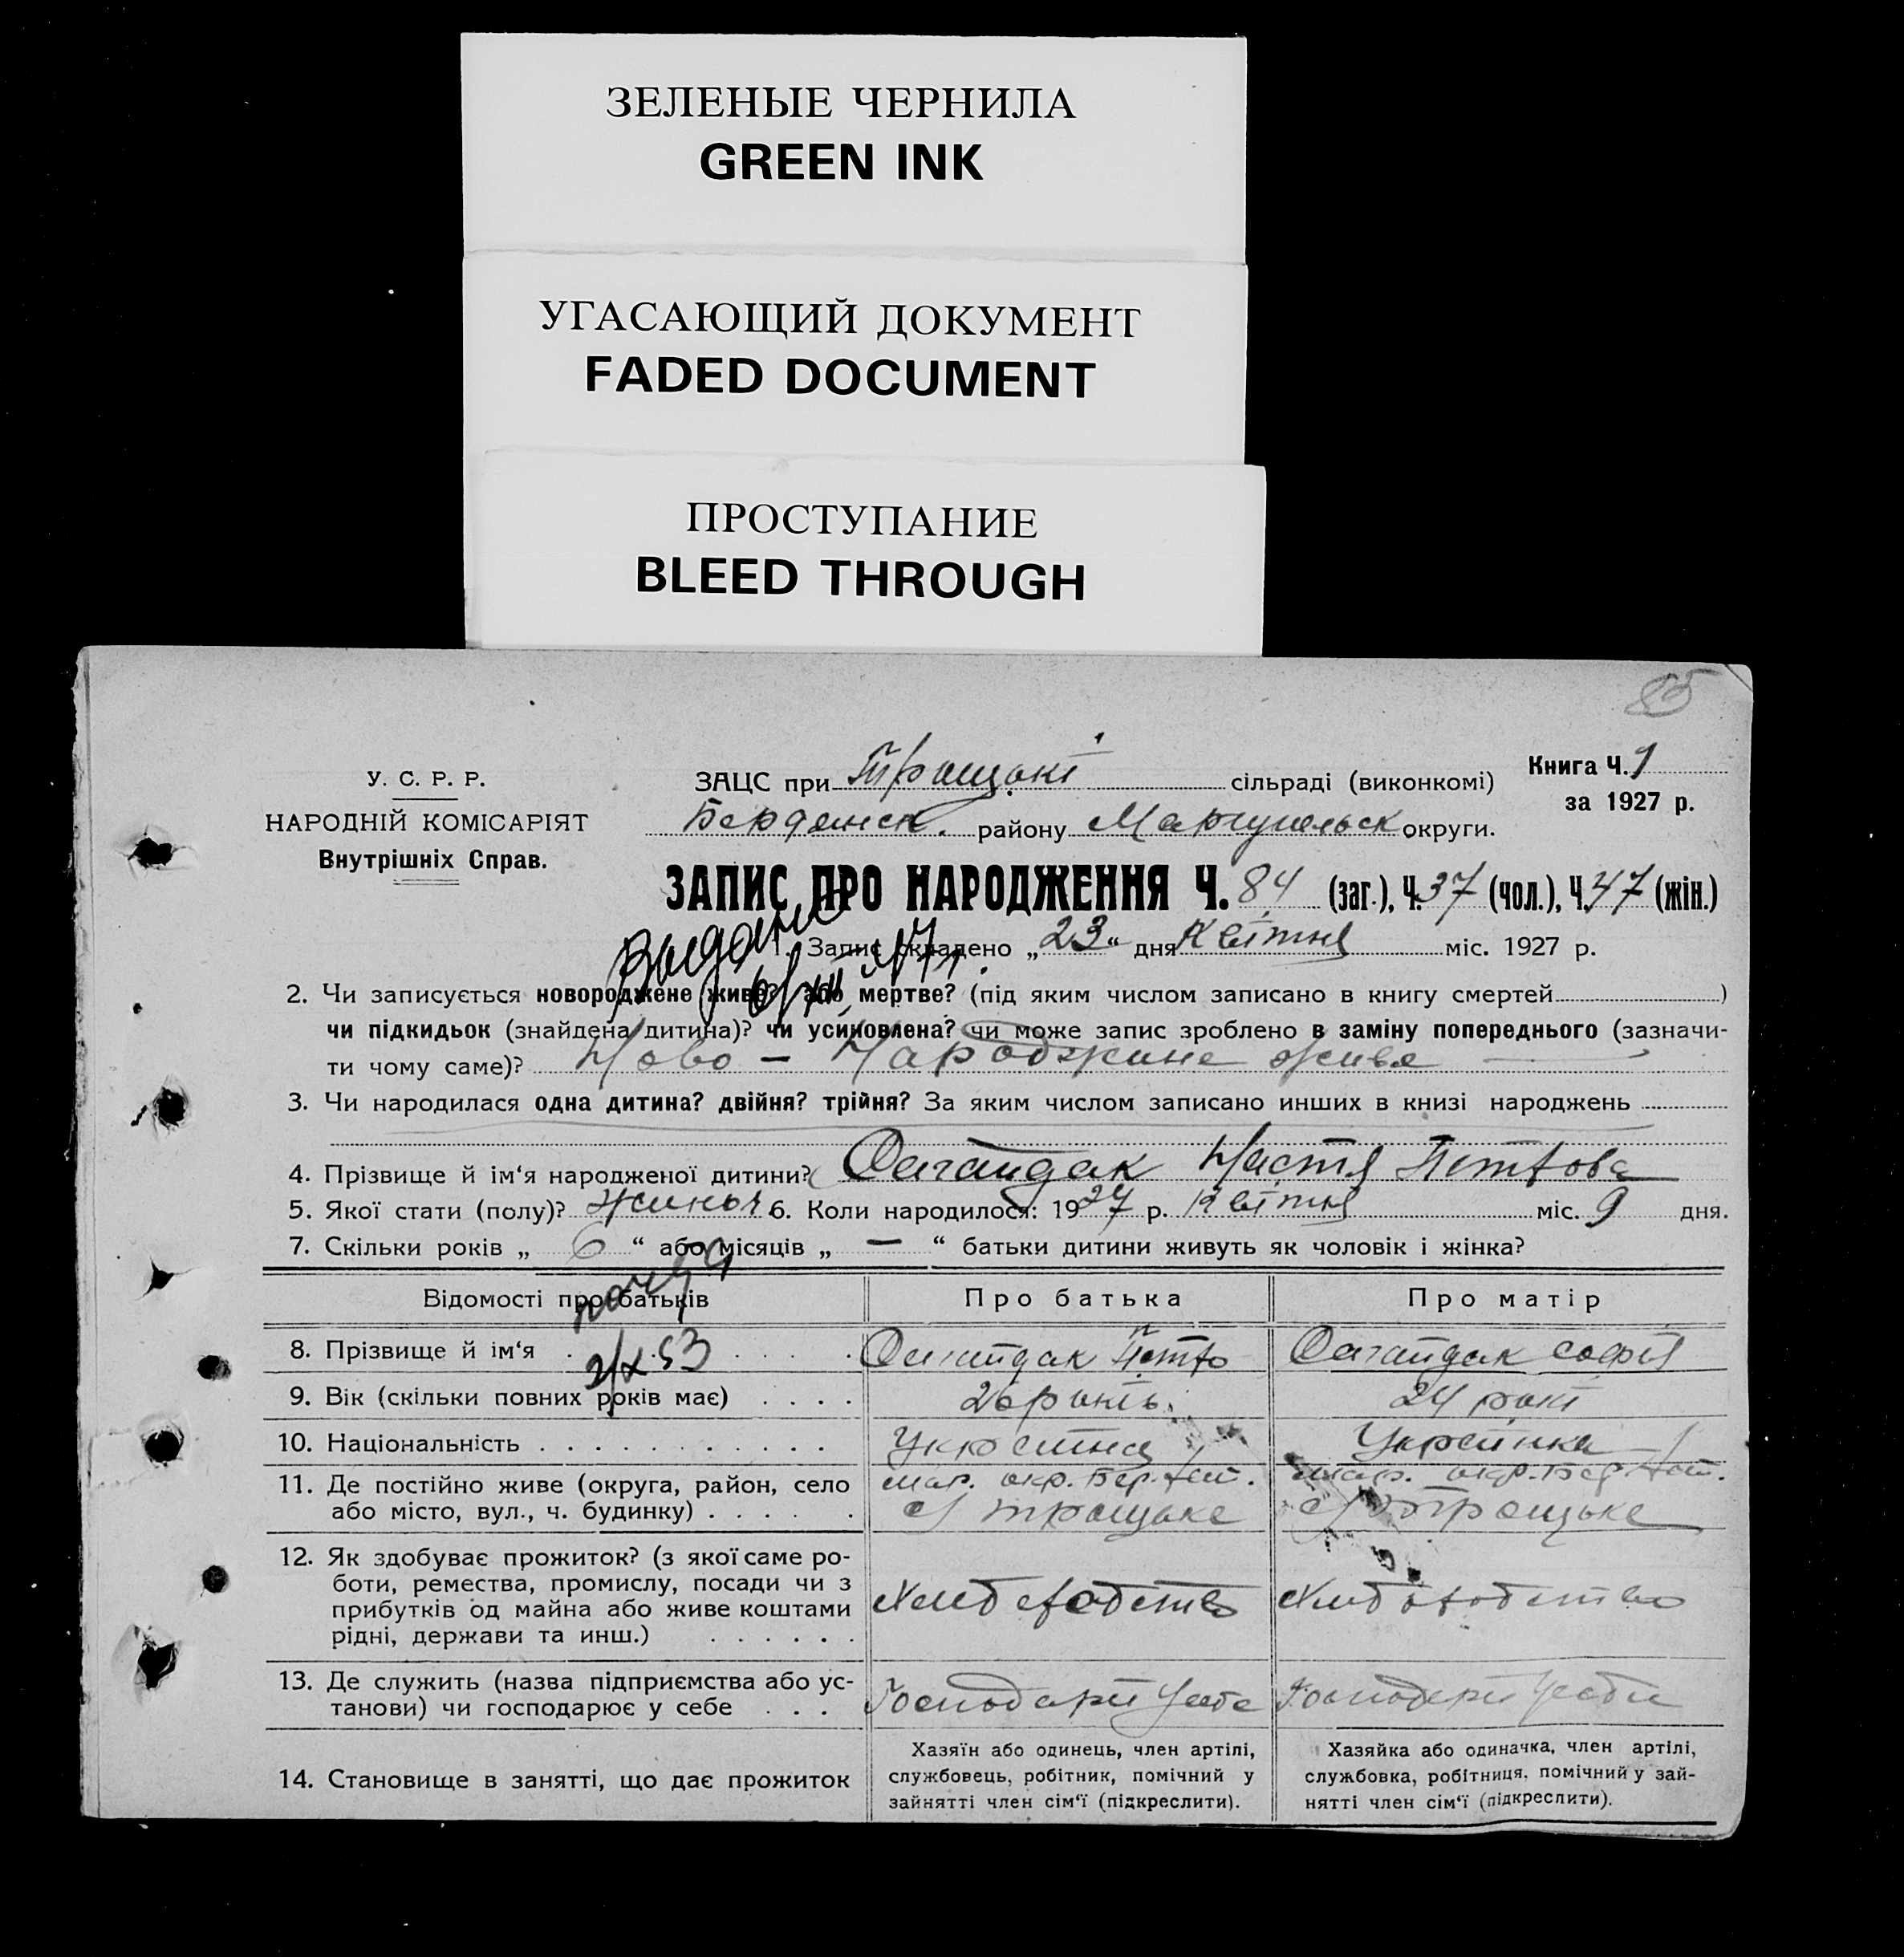 ЗЕЛЕНЫЕ ЧЕРНИЛА
GREEN INK
УГАСАЮЩИЙ ДОКУМЕНТ
FADED DOCUMENT
ПРОСТУПАНИЕ
BLEED THROUGH
85
У. С. Р. Р.
НАРОДНІЙ КОМІСАРІЯТ
Внутрішніх Справ.
ЗАЦС при Трощукі сільраді (виконкомі)
Бердянск. району Маріупольск округи.
Книга Ч. 1
за 1927 р.
ЗАПИС ПРО НАРОДЖЕННЯ Ч. 84 (заг.), Ч. 37 (чол.), Ч. 47 (жін.)
1. Запис складено „23“ дня Квітня міс. 1927 р.
2. Чи записується новороджене живе? або мертве? (під яким числом записано в книгу смертей )
чи підкидьок (знайдена дитина)? чи усиновлена? чи може запис зроблено в заміну попереднього (зазначи-
ти чому саме)? Ново - Народжине живе
3. Чи народилася одна дитина? двійня? трійня? За яким числом записано инших в книзі народжень
4. Прізвище й ім‘я народженої дитини? Настя Петрова
5. Якої стати (полу)? жиноч 6. Коли народилося: 1927 р. Квітня міс. 9 дня.
7. Скільки років „ 6 “ або місяців „ — “ батьки дитини живуть як чоловік і жінка?
Відомості про батьків
Про батька
Про матір
8. Прізвище й ім‘я
Петро
Софія
2/X 53
9. Вік (скільки повних років має)
26 років
24 рокі
10. Національність
Україниц
Українка
11. Де постійно живе (округа, район, село
або місто, вул., ч. будинку)
мар. окр. Бер.
с/ трощуке
мар. окр. Бер
с/ трощуке
12. Як здобуває прожиток? (з якої саме ро-
боти, ремества, промислу, посади чи з
прибутків од майна або живе коштами
рідні, держави та инш.)
Хлибородство
Хлибородство
13. Де служить (назва підприємства або ус-
танови) чи господарює у себе
Господарі у себе
Господарі у себе
14. Становище в занятті, що дає прожиток
Хазяїн або одинець, член артілі,
службовець, робітник, помічний у
зайнятті член сім‘ї (підкреслити).
Хазяйка або одиначка, член артілі,
службовка, робітниця, помічний у зай-
нятті член сім‘ї (підкреслити).